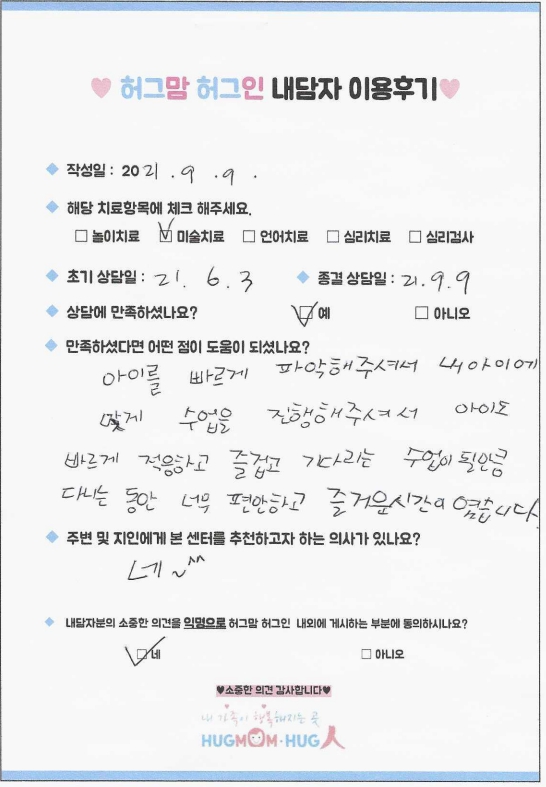 ♥ 허그맘 허그인 내담자 이용후기 ♥
◆ 작성일 : 2021 . 9 . 9 .
◆ 해당 치료항목에 체크 해주세요.
□ 놀이치료 ☑ 미술치료 □ 언어치료 □ 심리치료 □ 심리검사
◆ 초기 상담일 : 21. 6. 3 ◆ 종결 상담일 : 21. 9. 9
◆ 상담에 만족하셨나요? ☑ 예 □ 아니오
◆ 만족하셨다면 어떤 점이 도움이 되셨나요?
아이를 빠르게 파악해주셔서 내아이에
맞게 수업을 진행해주셔서 아이도
빠르게 적응하고 즐겁고 기다리는 수업이 될만큼
다니는 동안 너무 편안하고 즐거운시간이 였습니다.
◆ 주변 및 지인에게 본 센터를 추천하고자 하는 의사가 있나요?
네~^^
◆ 내담자분의 소중한 의견을 익명으로 허그맘 허그인 내외에 게시하는 부분에 동의하시나요?
☑ 네 □ 아니오
♥소중한 의견 감사합니다♥
내 가족이 행복해지는 곳
HUGMOM·HUG人